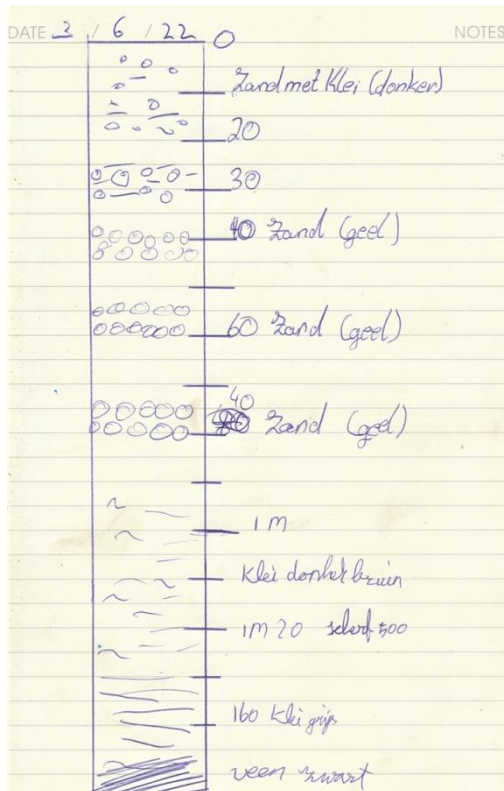 DATE 3 / 6 / 22 NOTES
0
Zand met Klei (donker)
20
30
40 Zand (geel)
60 Zand (geel)
40
Zand (geel)
1 m
Klei donker bruin
1M 20 scherf 500
160 Klei grijs
veen zwart